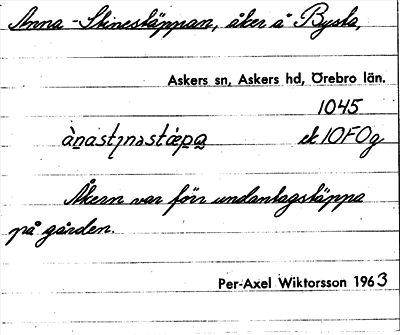 Anna-Stinestäppan, åker å Bysta,
Askers sn, Askers hd, Örebro län.
1045
ek 10F0g
Åkern var förr undantagstäppa
på gården.
Per-Axel Wiktorsson 1963